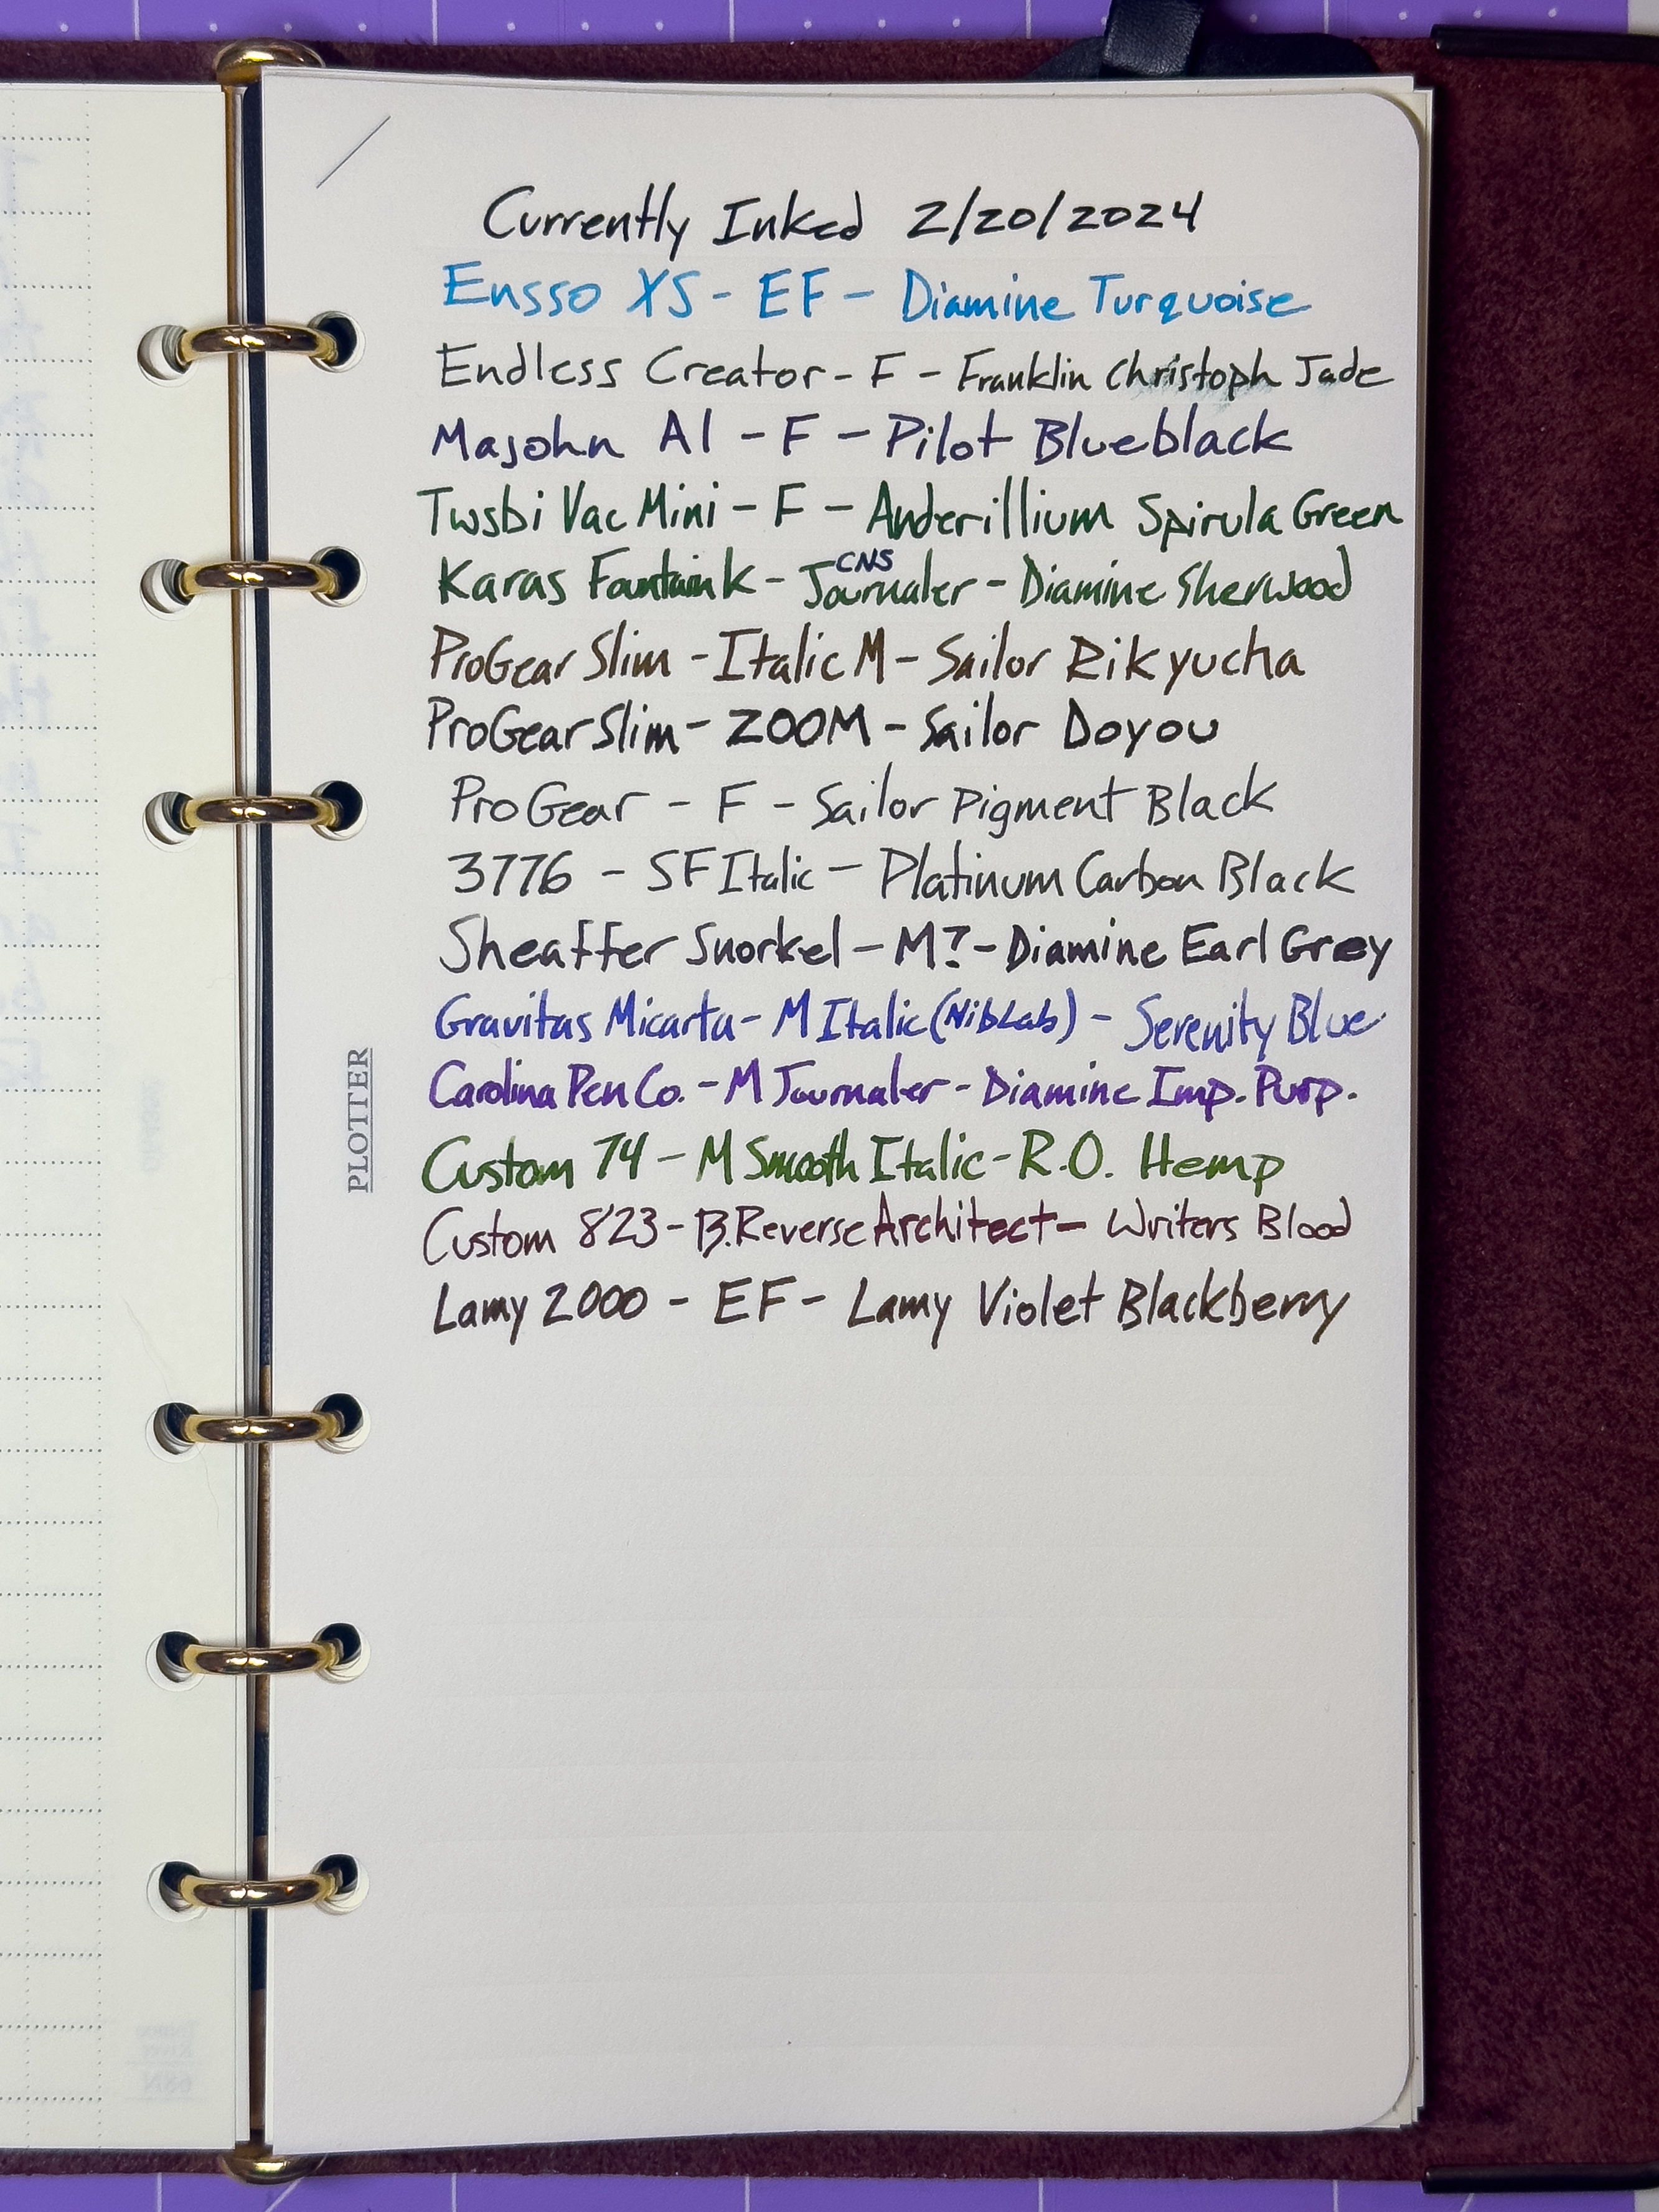 Currently Inked 2/20/2024
Ensso XS - EF - Diamine Turquoise
Endless Creator - F - Franklin Christoph Jade
Majohn A1 - F - Pilot Blueblack
Twsbi Vac Mini - F - Anderillium Spirula Green
CNS
Karas Fountain k - Journaler - Diamine Sherwood
ProGear Slim - Italic M - Sailor Rikyucha
ProGear Slim - ZOOM - Sailor Doyou
Pro Gear - F - Sailor Pigment Black
3776 - SF Italic - Platinum Carbon Black
Sheaffer Snorkel - M? - Diamine Earl Grey
Gravitas Micarta - M Italic (NibLab) - Serenity Blue
Carolina Pen Co. - M Journaler - Diamine Imp. Purp.
Custom 74 - M Smooth Italic - R.O. Hemp
Custom 823 - B. Reverse Architect - Writers Blood
Lamy 2000 - EF - Lamy Violet Blackberry
PLOTTER